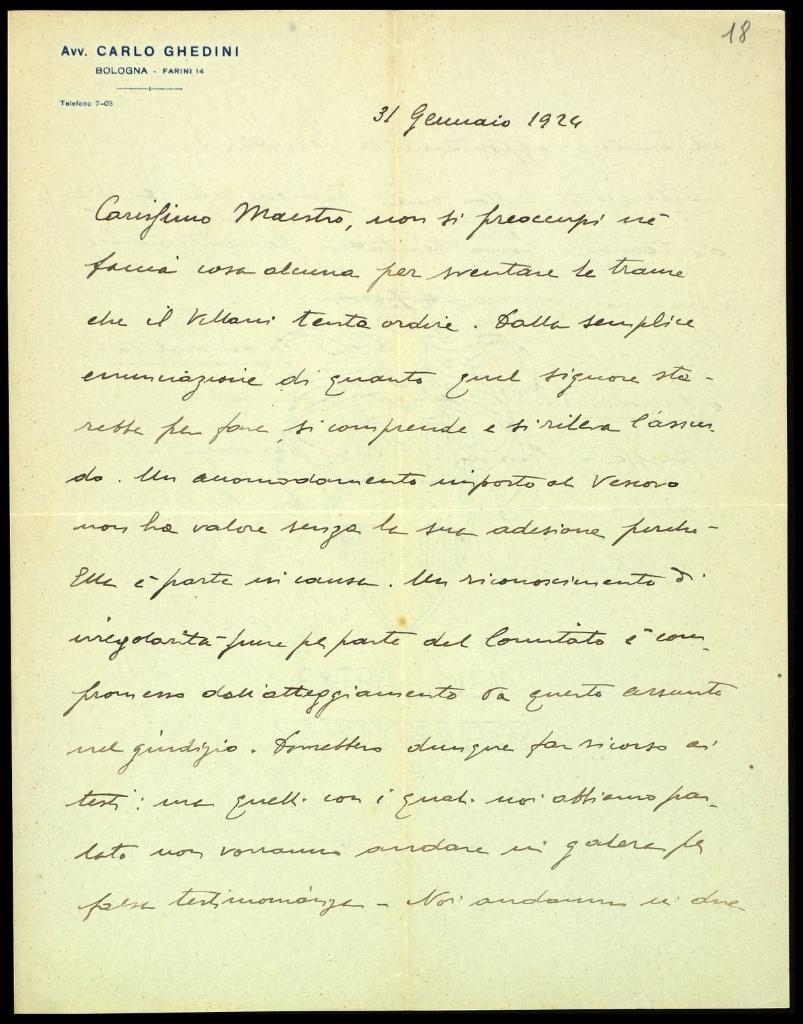 18
Avv. CARLO GHEDINI
BOLOGNA - FARINI 14
Telefono 7-03
31 Gennaio 1924
Carissimo Maestro, non si preoccupi nè
faccia cosa alcuna per sventare le trame
che il Villani tenta ordire. Dalla semplice
enunciazione di quanto quel signore sta-
rebbe per fare, si comprende e si rileva l'assur-
do. Un accomodamento imposto al Vescovo
non ha valore senza la sua adesione perchè
Ella è parte in causa. Un riconoscimento di
irregolarità pure per parte del Comitato è com-
promesso dall'atteggiamento da questo assunto
nel giudizio. Dovrebbero dunque far ricorso ai
testi: ma quelli con i quali noi abbiamo par-
lato non vorranno andare in galera per
falsa testimonianza - Noi andammo in due